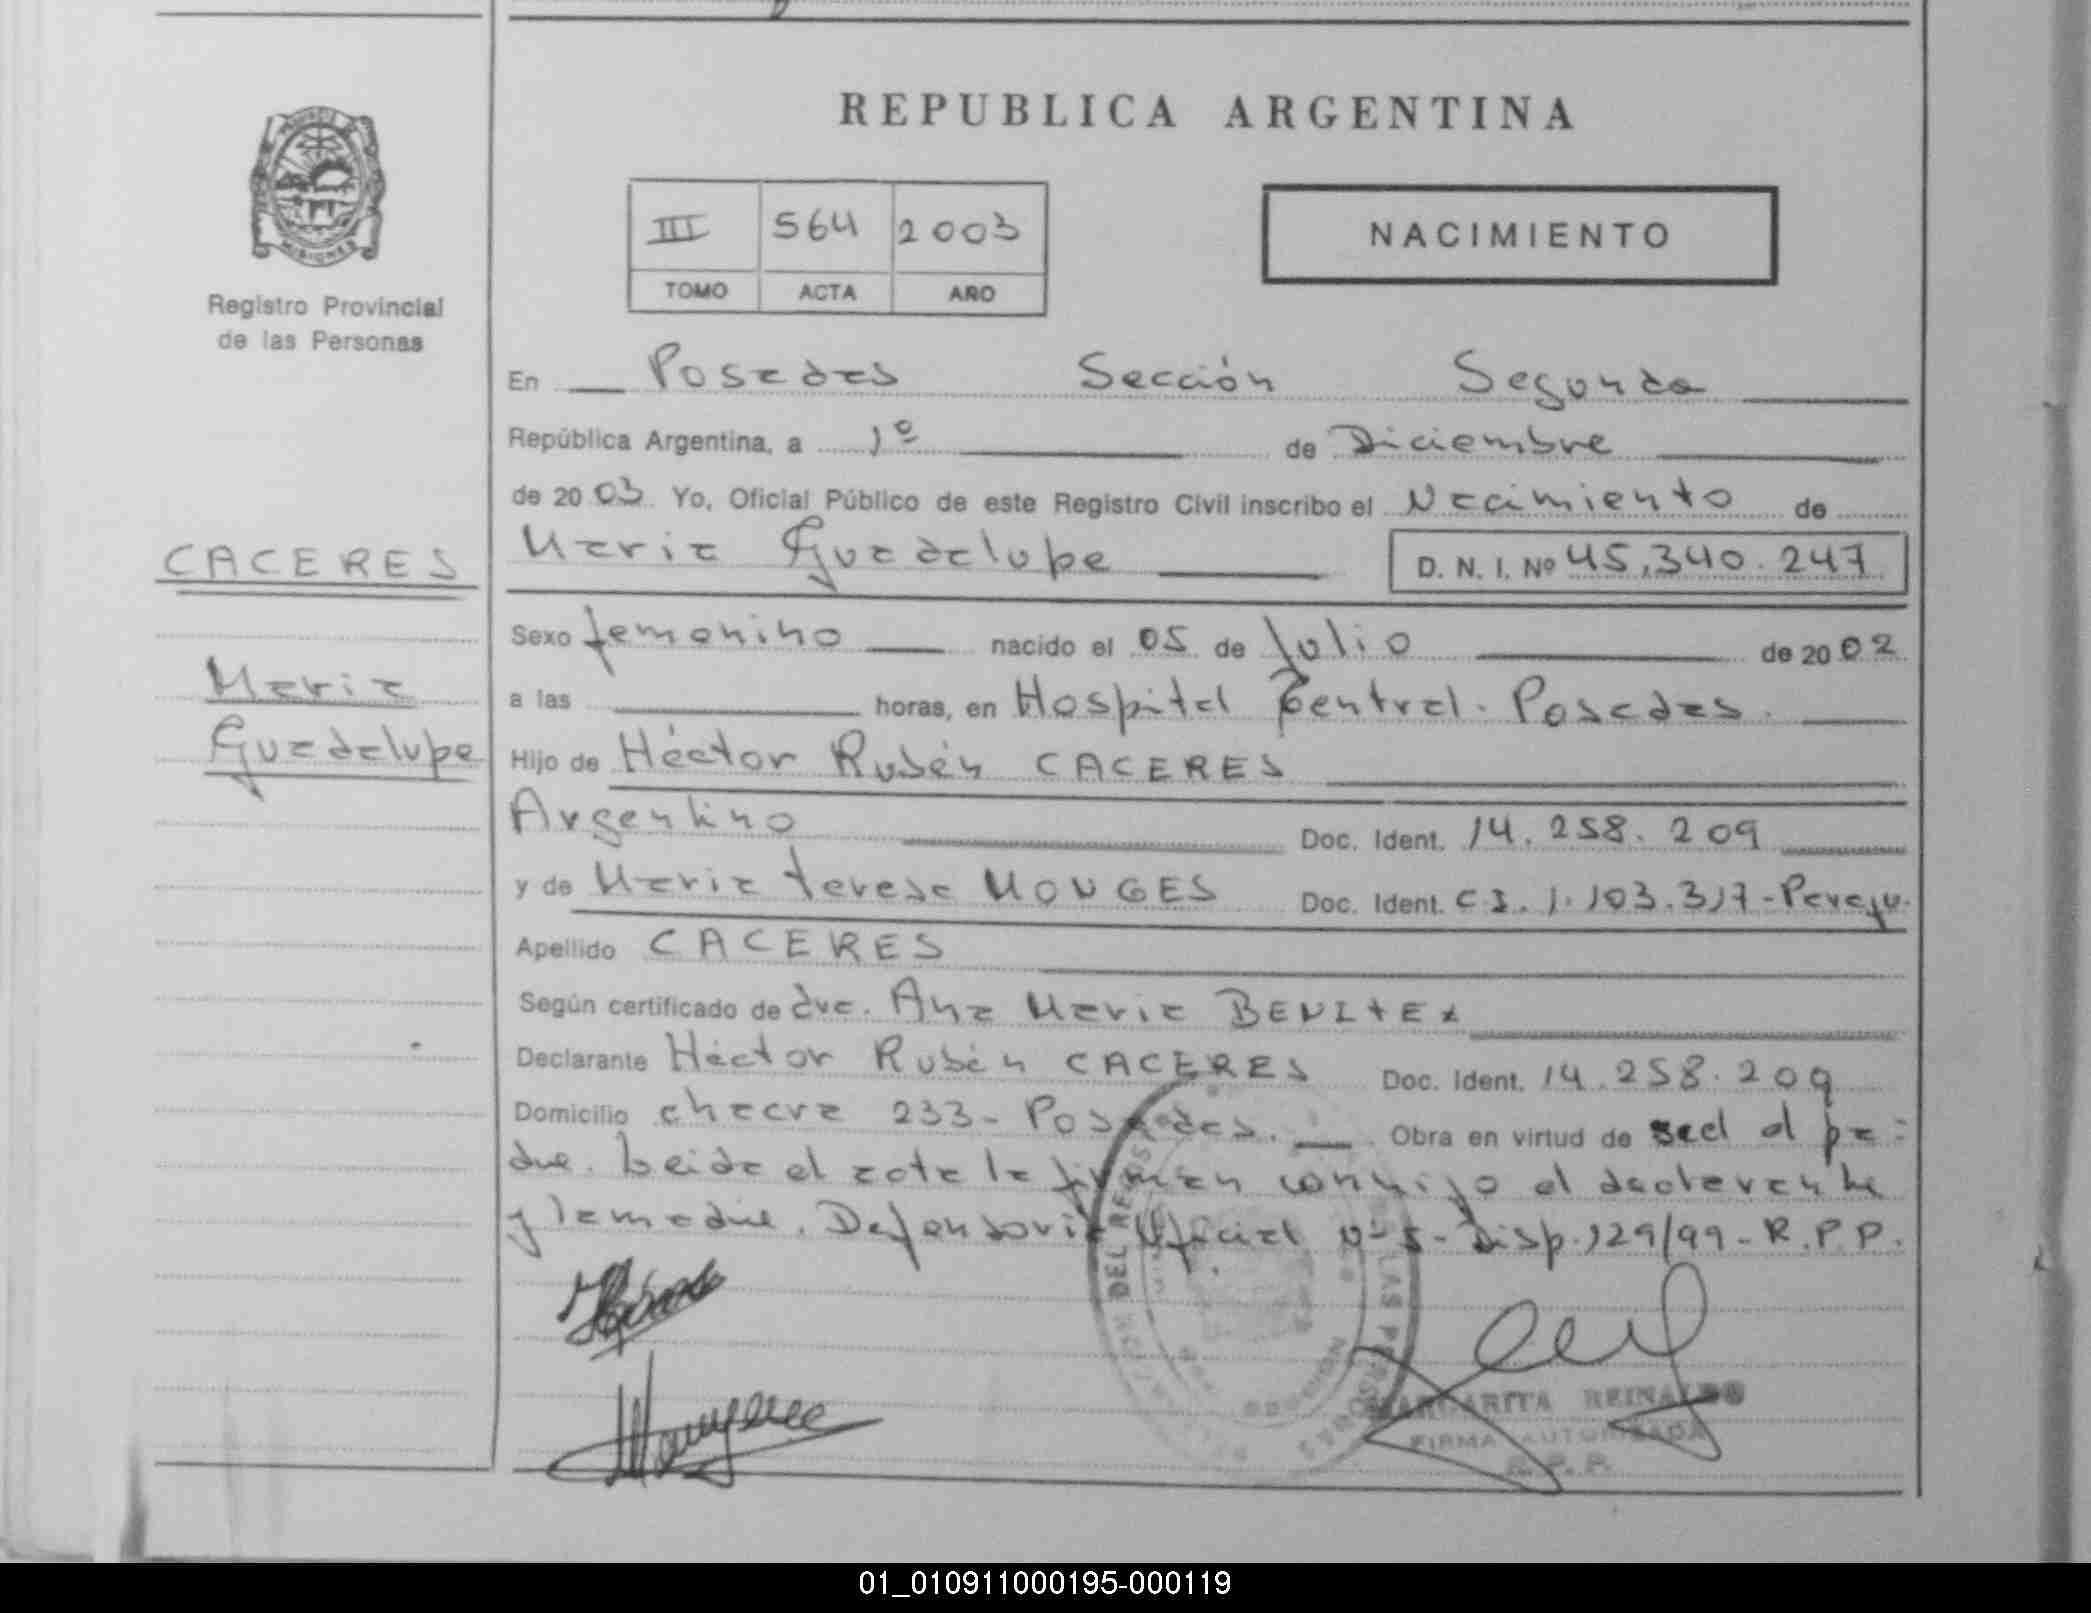 REPUBLICA ARGENTINA
MISIONES
III 564 2003
TOMO ACTA AÑO
NACIMIENTO
Registro Provincial
de las Personas
En Posadas Sección Segunda
República Argentina, a 1º de Diciembre
de 2003. Yo, Oficial Público de este Registro Civil inscribo el Nacimiento de
CACERES
Maria Guadalupe D. N. I. Nº 45.340.247
Sexo femenino nacido el 05 de Julio de 2002
Maria
Guadalupe
a las horas, en Hospital Central. Posadas.
Hijo de Héctor Rubén CACERES
Argentino Doc. Ident. 14.258.209
y de Maria teresa MONGES Doc. Ident. C I. 1.103.317-Paragu.
Apellido CACERES
Según certificado de dra. Ana Maria BENITEZ
Declarante Héctor Rubén CACERES Doc. Ident. 14.258.209
Domicilio chacra 233- Posadas. Obra en virtud de ser el pa-
dre. Leida el acta la firman conmigo el declarante
y la madre. Defensoria Oficial nº 5- Disp. 129/99- R.P.P.
DEL REGIS
LAS PERSONAS
MARGARITA REINALDO
FIRMA AUTORIZADA
R. P. P.
01_010911000195-000119